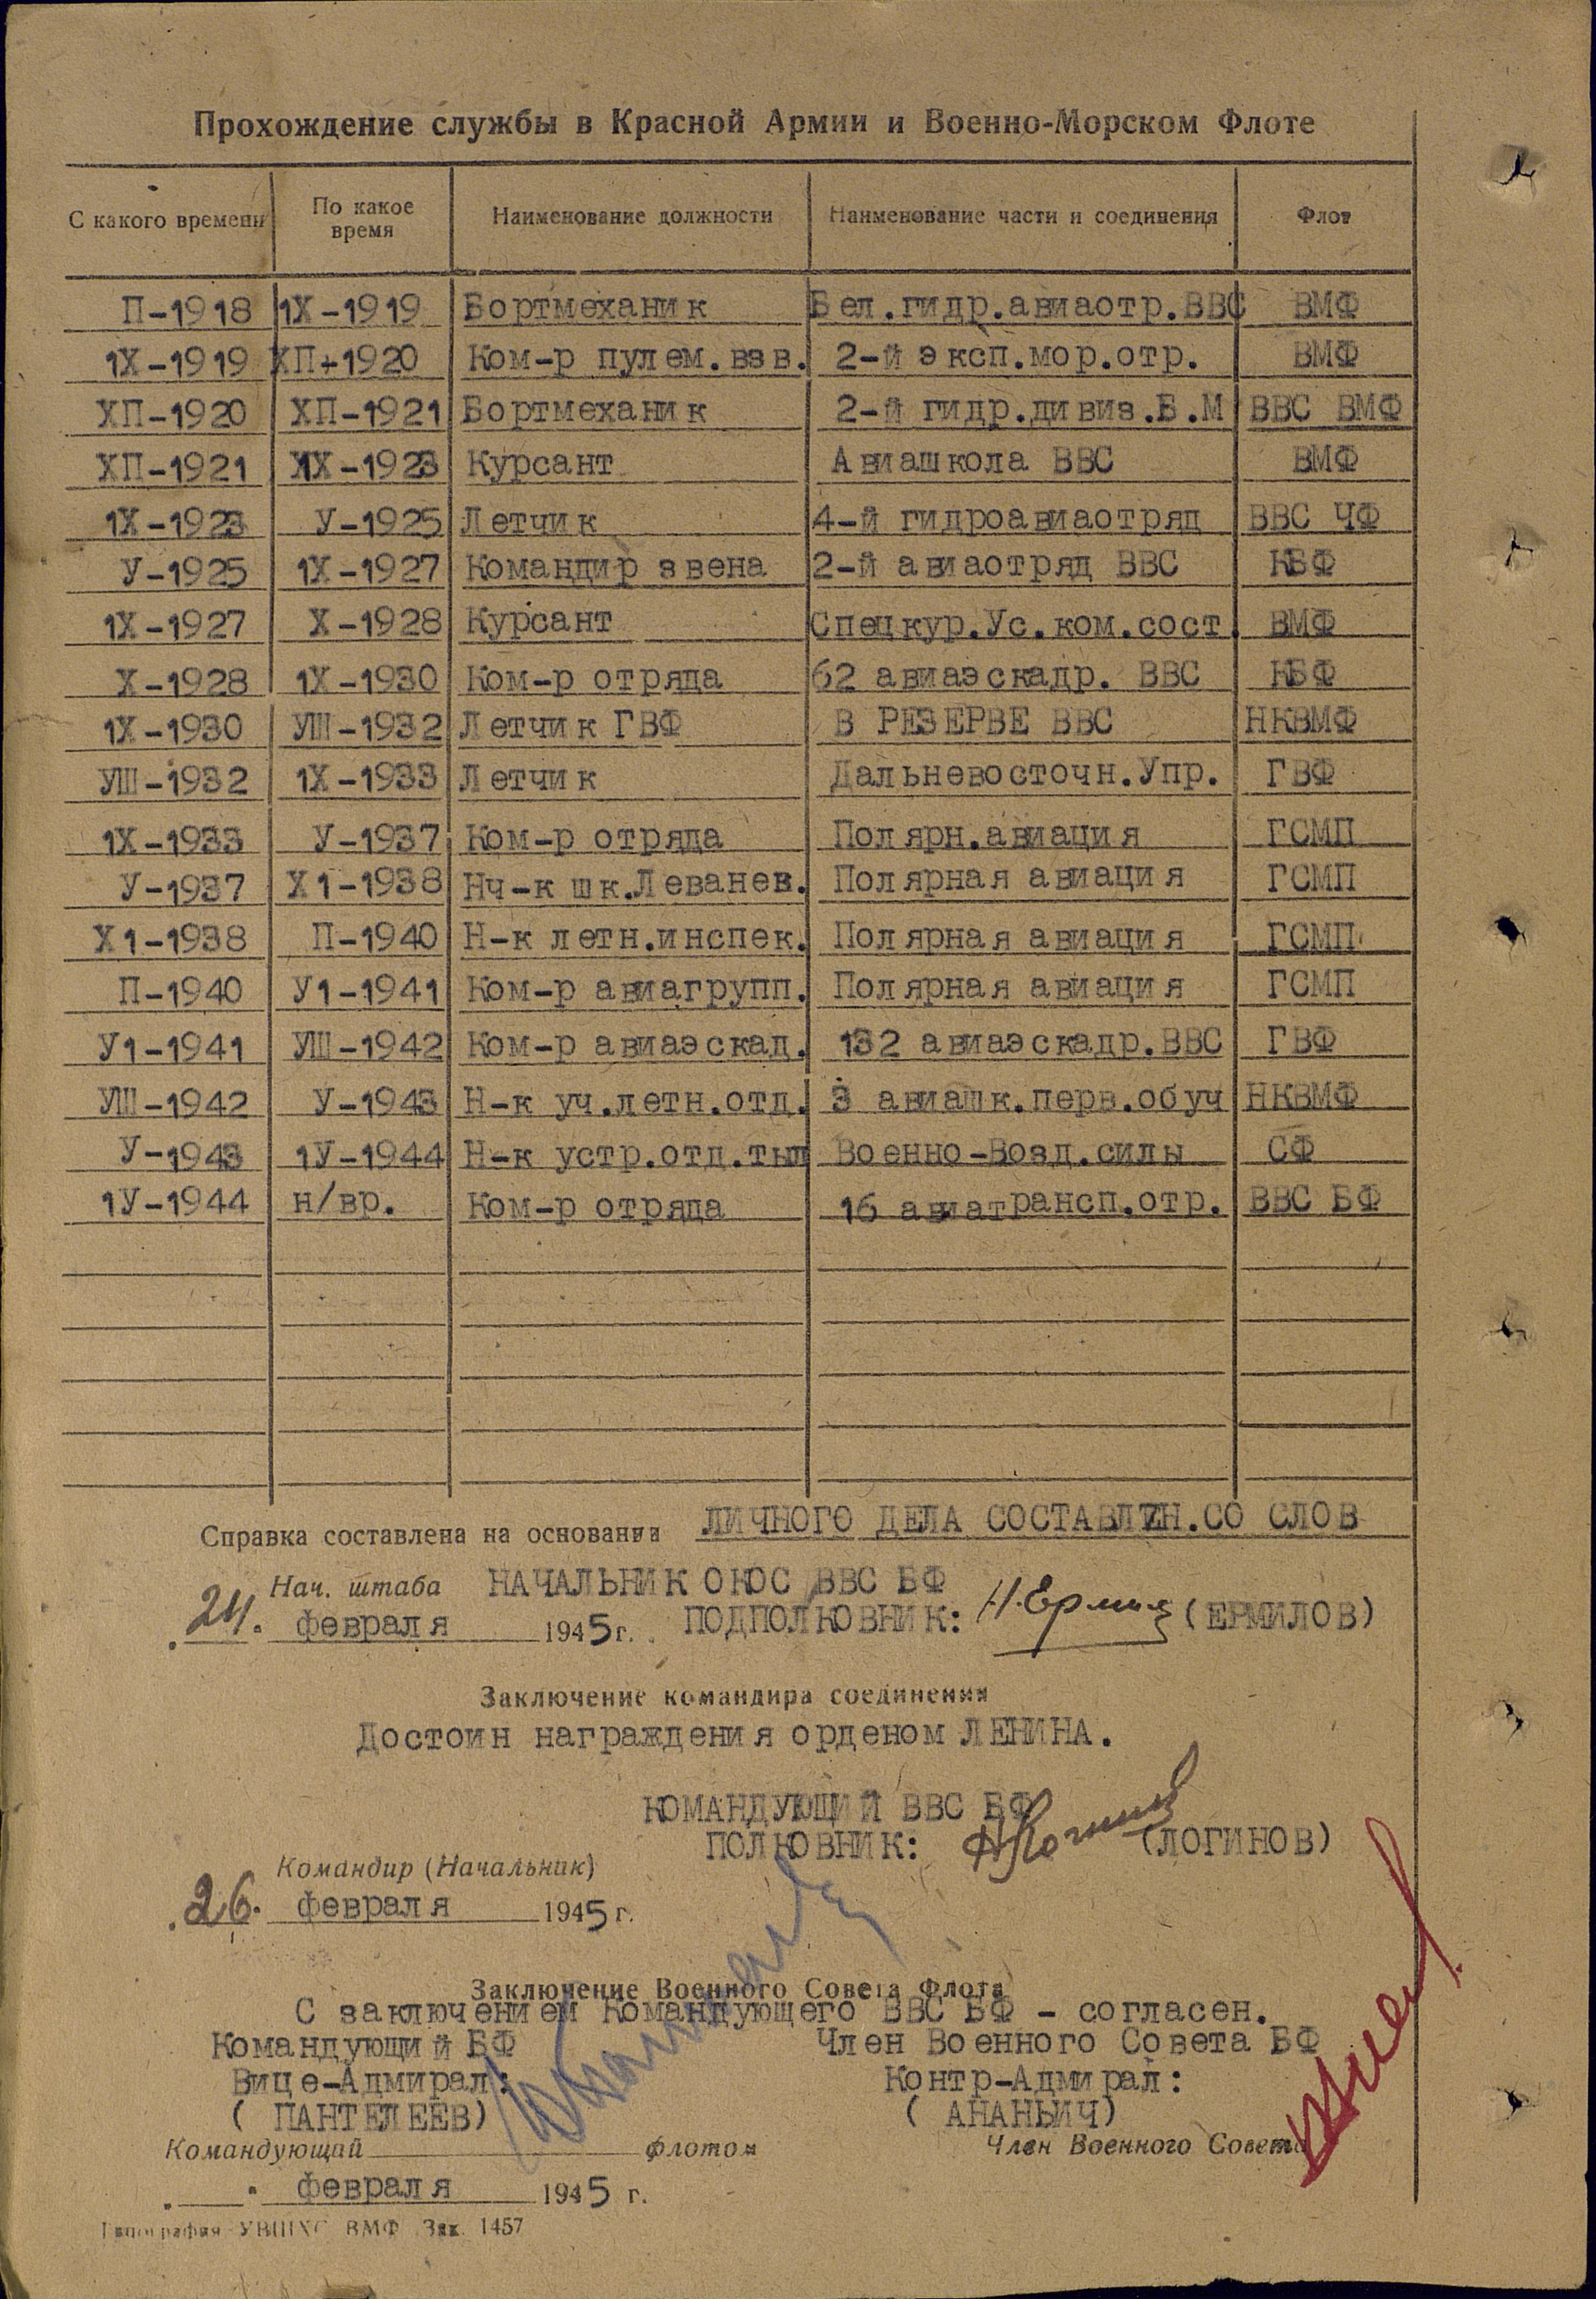 Прохождение службы в Красной Армии и Военно-Морском Флоте
С какого времени По какое время Наименование должности Наименование части и соединения Флот
П-1918 1Х-1919 Бортмеханик Бел.гидр.авиаотр.ВВС ВМФ
1Х-1919 ХП-1920 Ком-р пулем.взв. 2-й эксп.мор.отр. ВМФ
ХП-1920 ХП-1921 Бортмеханик 2-й гидр.дивиз.Б.М ВВС ВМФ
ХП-1921 1Х-1923 Курсант Авиашкола ВВС ВМФ
1Х-1923 У-1925 Летчик 4-й гидроавиаотряд ВВС ЧФ
У-1925 1Х-1927 Командир звена 2-й авиаотряд ВВС КБФ
1Х-1927 Х-1928 Курсант Спецкур.Ус.ком.сост. ВМФ
Х-1928 1Х-1930 Ком-р отряда 62 авиаэскадр. ВВС КБФ
1Х-1930 УШ-1932 Летчик ГВФ В РЕЗЕРВЕ ВВС НКВМФ
УШ-1932 1Х-1933 Летчик Дальневосточн.Упр. ГВФ
1Х-1933 У-1937 Ком-р отряда Полярн.авиация ГСМП
У-1937 Х1-1938 Нч-к шк.Леванев. Полярная авиация ГСМП
Х1-1938 П-1940 Н-к летн.инспек. Полярная авиация ГСМП
П-1940 У1-1941 Ком-р авиагрупп. Полярная авиация ГСМП
У1-1941 УШ-1942 Ком-р авиаэскад. 132 авиаэскадр.ВВС ГВФ
УШ-1942 У-1943 Н-к уч.летн.отд. 3 авиашк.перв.обуч НКВМФ
У-1943 1У-1944 Н-к устр.отд.тыл Военно-Возд.силы СФ
1У-1944 н/вр. Ком-р отряда 16 авиатрансп.отр. ВВС БФ
Справка составлена на основании ЛИЧНОГО ДЕЛА СОСТАВЛЕН.СО СЛОВ
Нач. штаба НАЧАЛЬНИК ОКОС ВВС БФ
24. февраля 1945 г. ПОДПОЛКОВНИК: Н.Ермилов (ЕРМИЛОВ)
Заключение командира соединения
Достоин награждения орденом ЛЕНИНА.
КОМАНДУЮЩИЙ ВВС БФ
ПОЛКОВНИК: (ЛОГИНОВ)
Командир (Начальник)
26. февраля 1945 г.
Заключение Военного Совета Флота
С заключением Командующего ВВС БФ - согласен.
Командующий БФ Член Военного Совета БФ
Вице-Адмирал: Контр-Адмирал:
( ПАНТЕЛЕЕВ) ( АНАНЬИЧ)
Командующий флотом Член Военного Совета
февраля 1945 г.
Типография УВШХС ВМФ Зак. 1457